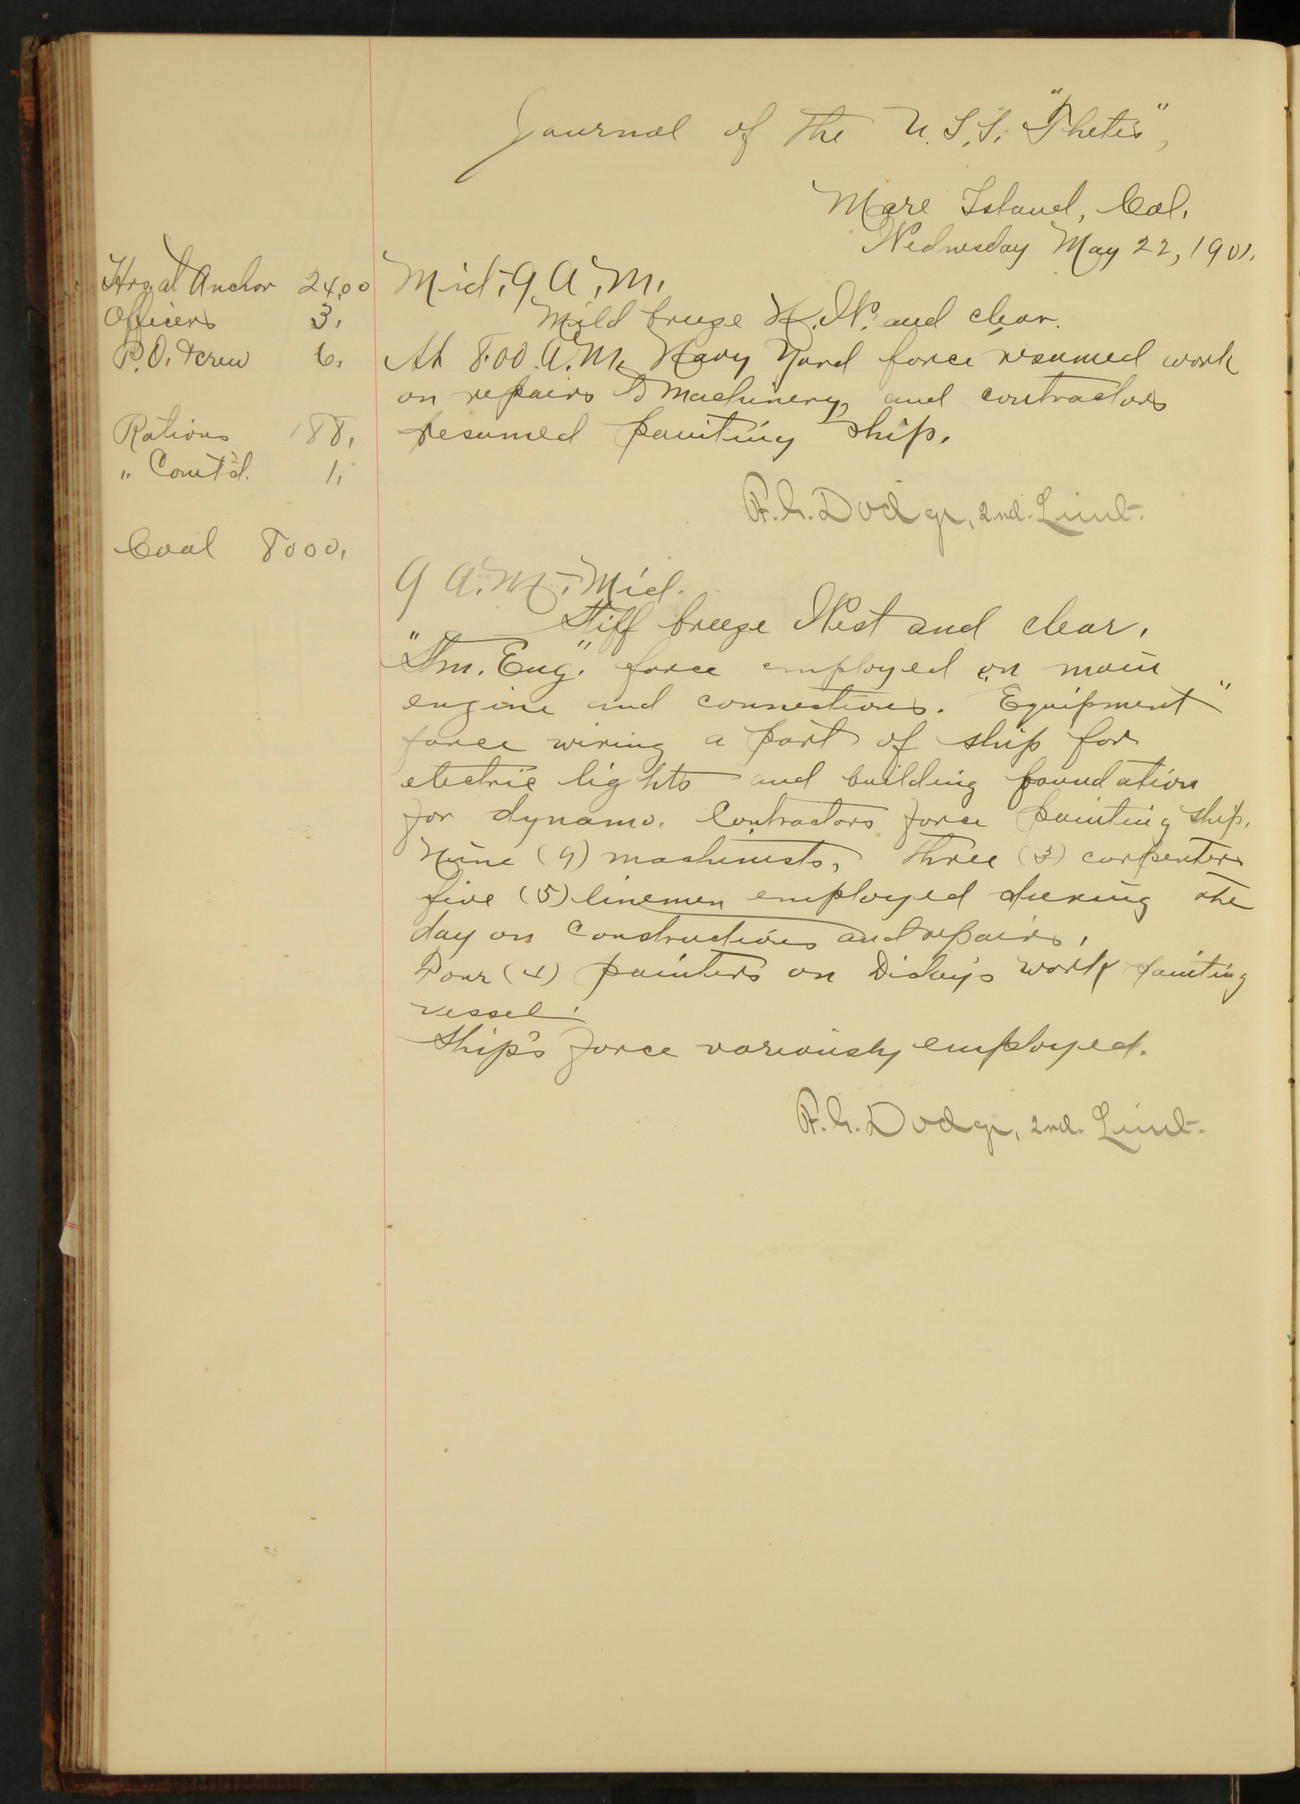 Journal of the U.S.S. "Thetis",
Mare Island, Cal.
Wednesday May 22, 1901.
Hrs. at Anchor 24.00
Officers 3.
P.O. & crew 6.
Rations 188.
" Comt'd. 1.
Coal 8000.
Mid-9 A.M.
Mild breeze N.W. and clear.
At 8.00 A.M. Navy Yard force resumed work
on repairs to machinery, and contractors
resumed painting ship.
F.G. Dodge, 2nd. Lieut.
9 A.M.-Mid.
Stiff breeze West and clear.
"Stm. Eng." force employed on main
engine and connections. "Equipment"
force wiring a part of ship for
electric lights and building foundation
for dynamo. Contractors force painting ship.
Nine (9) machinists, three (3) carpenters
five (5) linemen employed during the
day on construction and repairs.
Four (4) painters on work painting
vessel.
Ship's force variously employed.
F.G. Dodge, 2nd. Lieut.